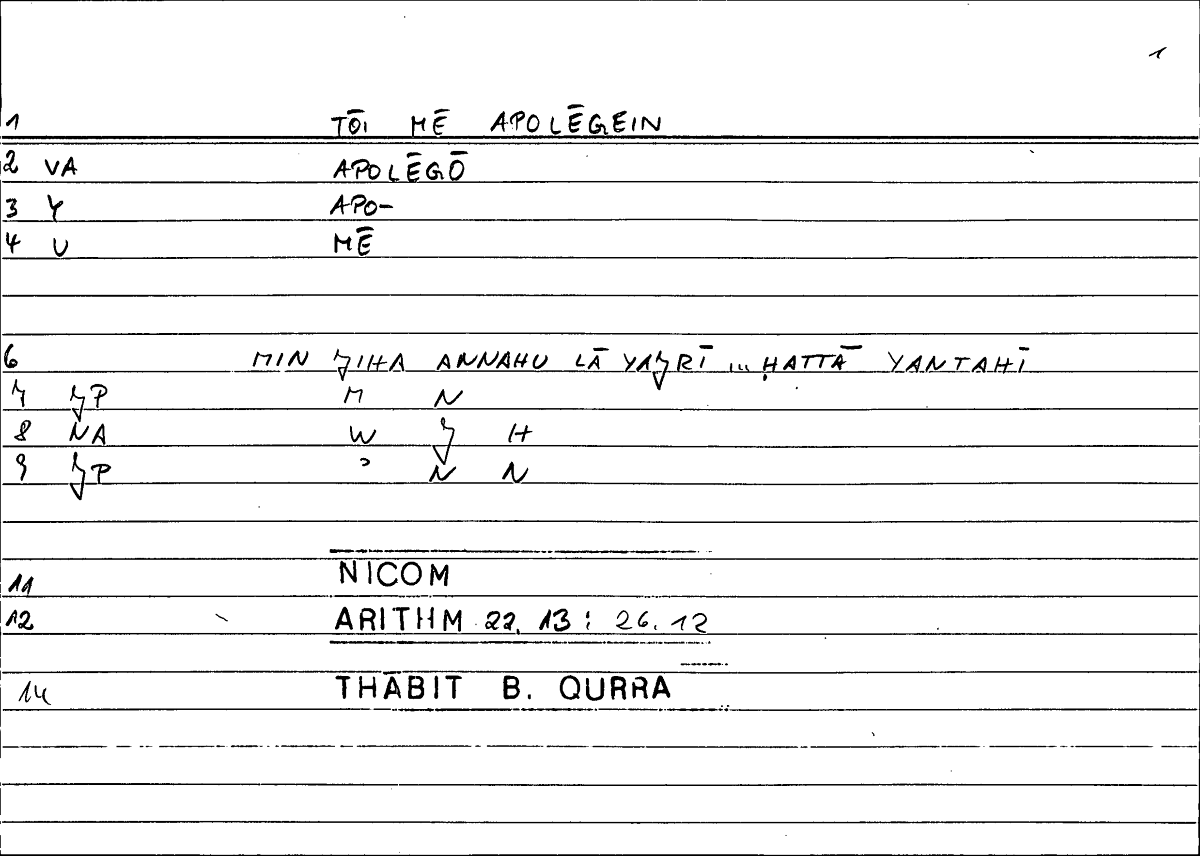 1
1 TŌI MĒ APOLĒGEIN
2 VA APOLĒGŌ
3 Y APO-
4 U MĒ
6 MIN JIHA ANNAHU LĀ YAJRĪ ... ḤATTĀ YANTAHĪ
7 JP M N
8 NA W J H
9 JP ʾ N N
11 NICOM
12 ARITHM 22. 13 : 26. 12
14 THĀBIT B. QURRA